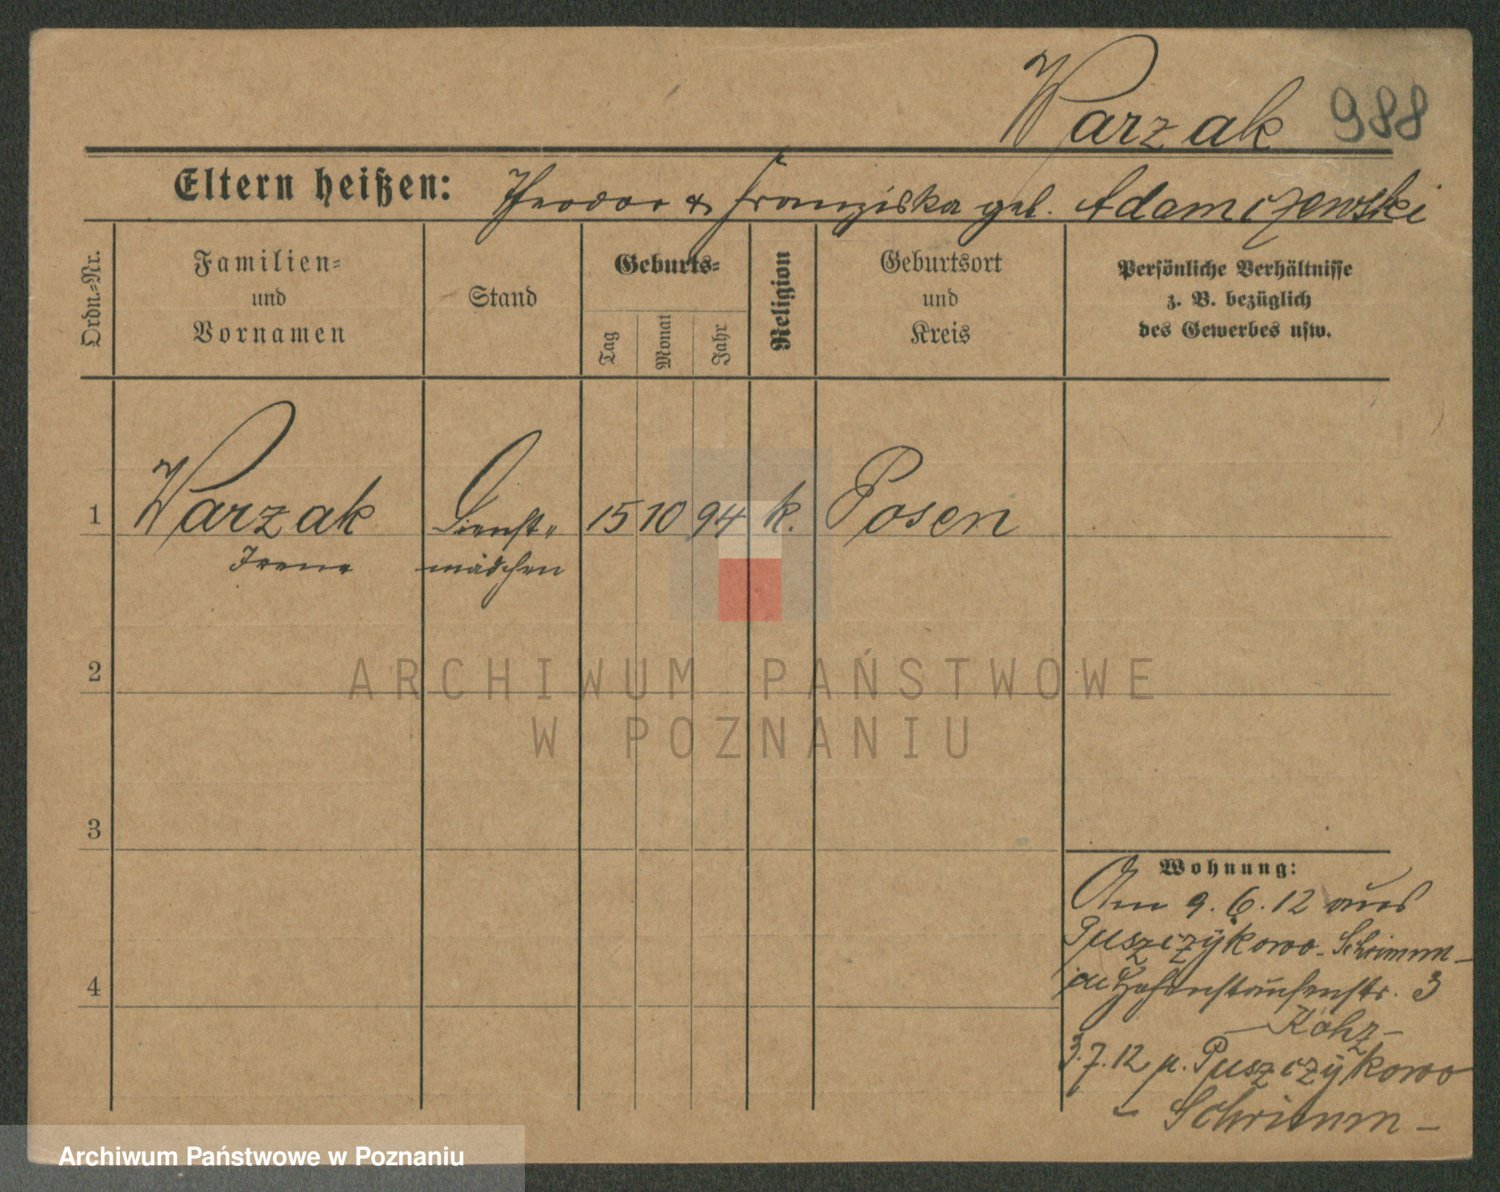 Warzak 988
Eltern heißen: Theodor & Franziska geb. Adamczewski
Ordn.-Nr.
Familien-
und
Vornamen
Stand
Geburts-
Tag
Monat
Jahr
Religion
Geburtsort
und
Kreis
Persönliche Verhältnisse
z. B. bezüglich
des Gewerbes usw.
1 Warzak Dienst- 15 10 94 k. Posen
Irene mädchen
2
3
4
Wohnung:
Am 9.6.12 aus
Puszczykowo - Schrimm -
Hohenstaufenstr. 3
3.7.12 n. Puszczykowo
- Schrimm -
ARCHIWUM PAŃSTWOWE
W POZNANIU
Archiwum Państwowe w Poznaniu